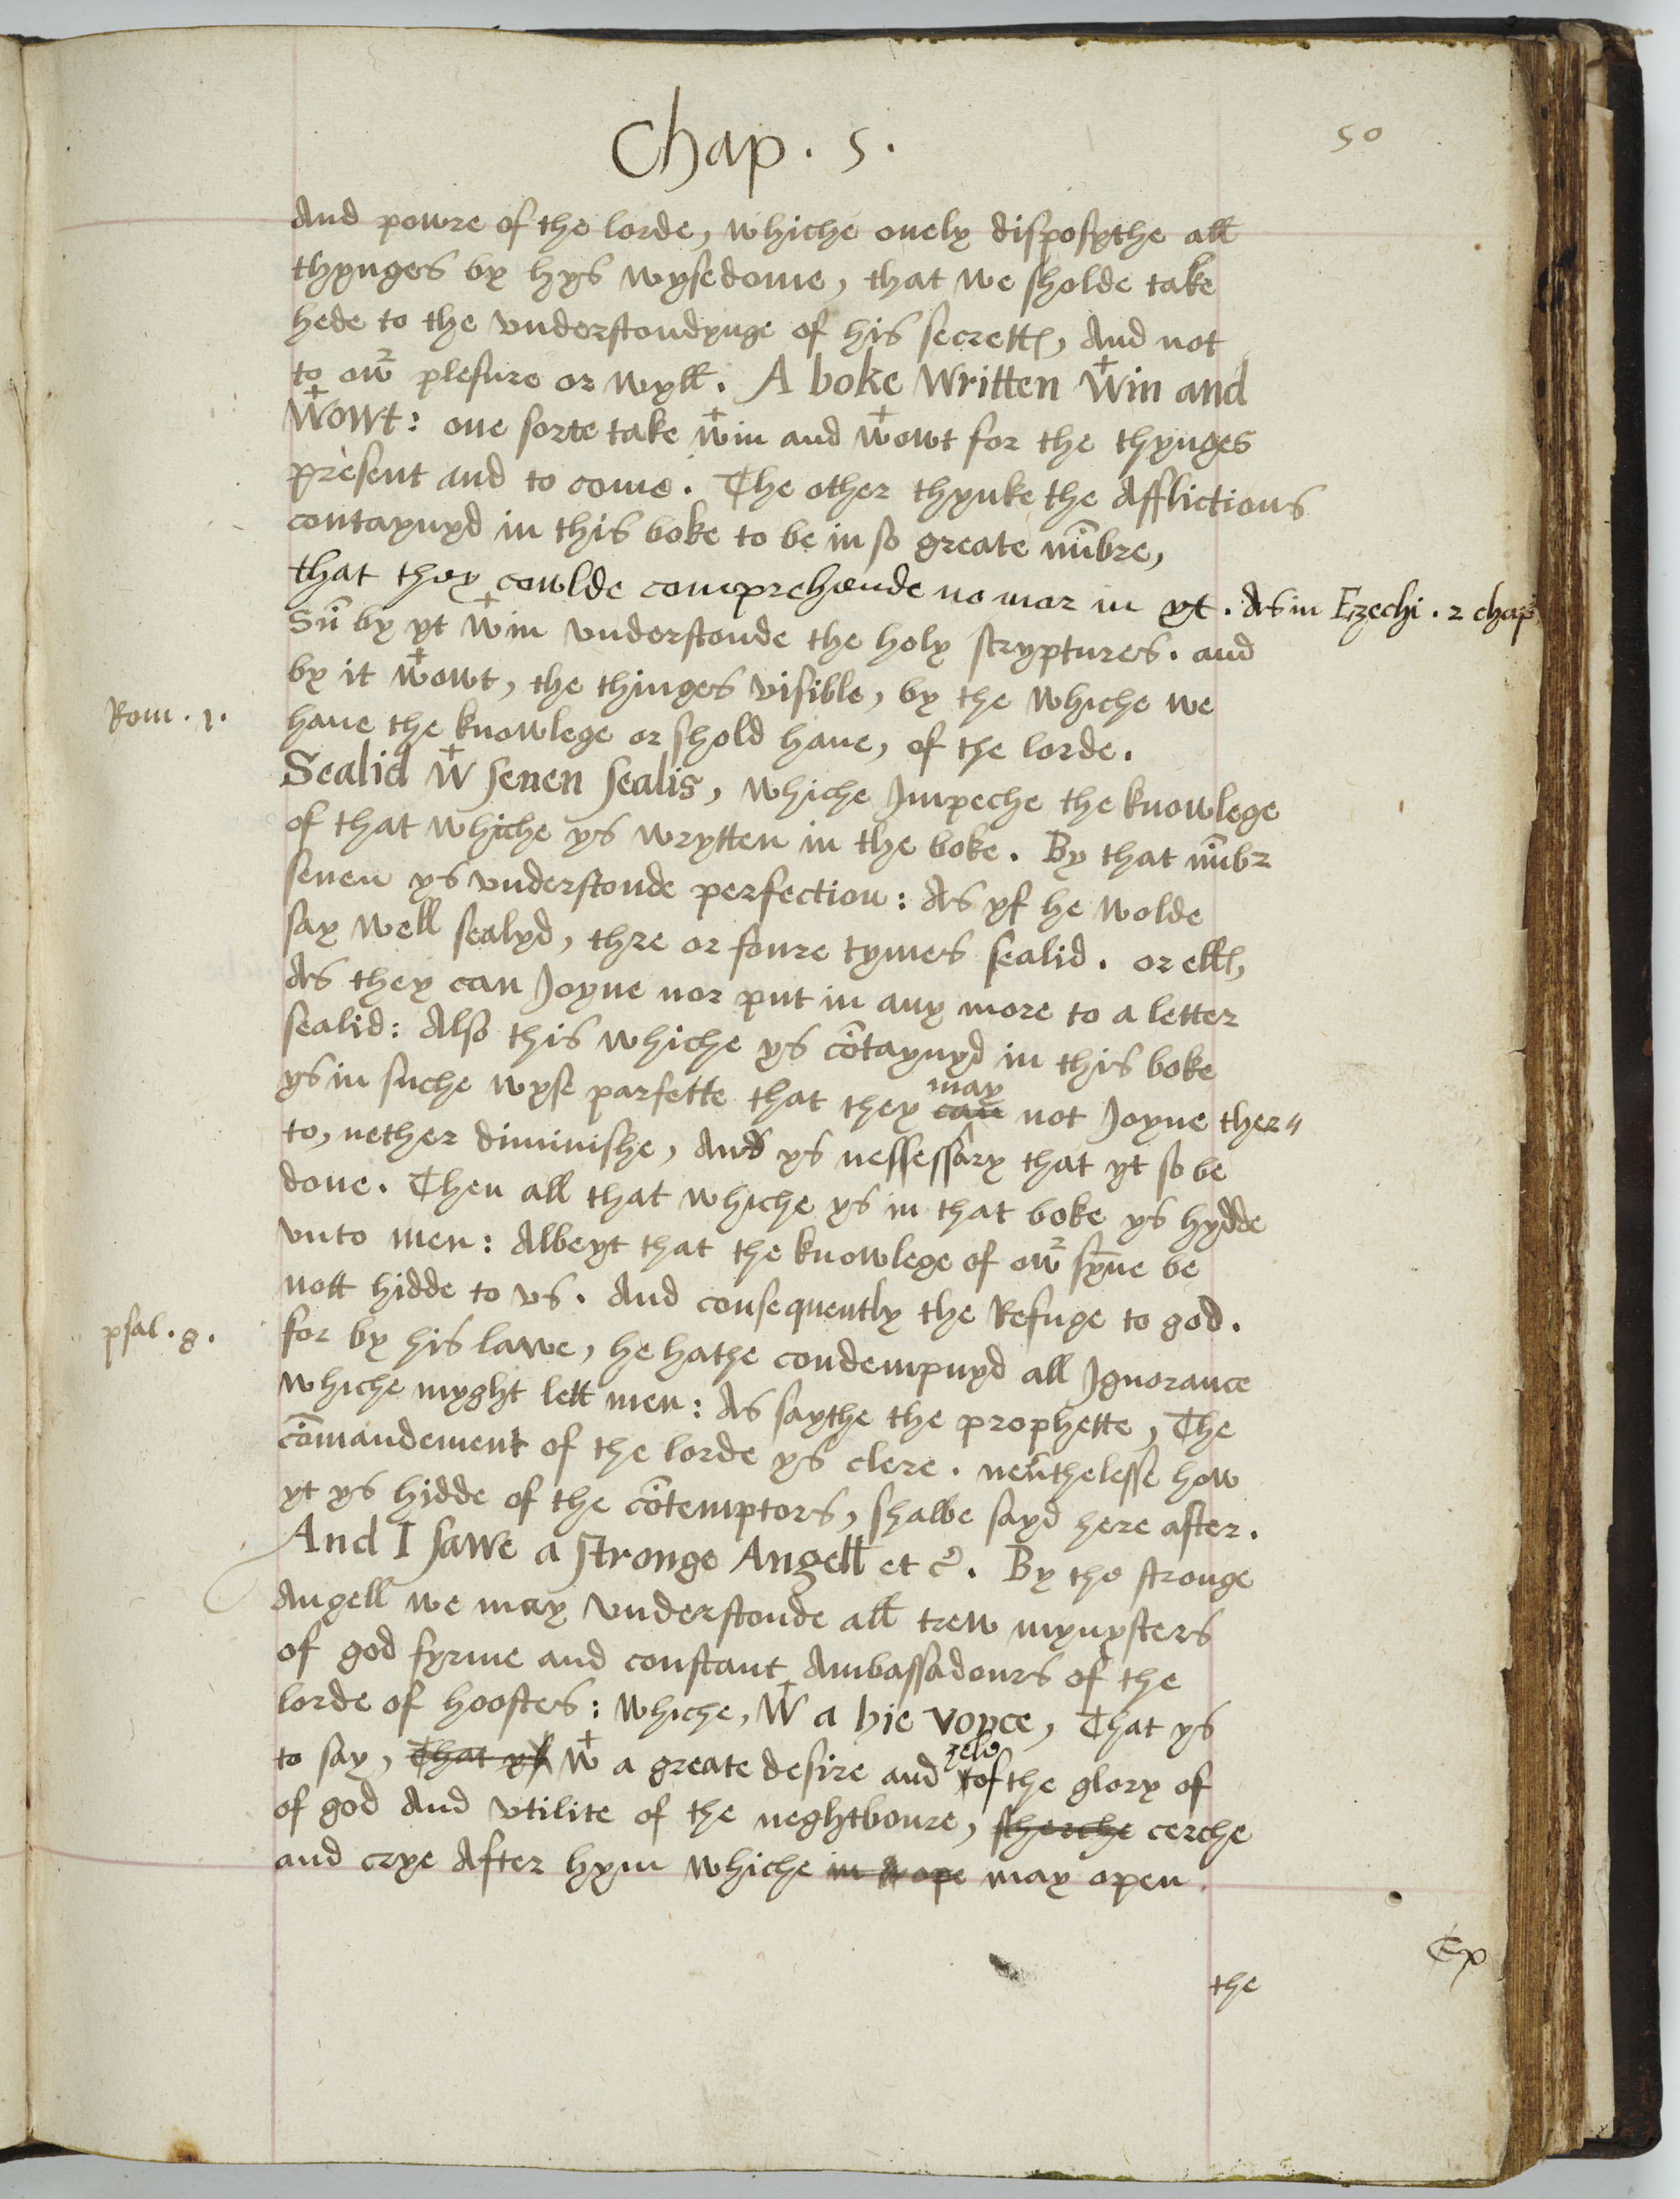 Chap . 5 .
50
And powre of the lorde, whiche onely disposythe all
thynges by hys wysedome, that we sholde take
hede to the vnderstondynge of his secrett, And not
to owr plesure or wyll . A boke written wtin and
wtowt : one sorte take wtin and wtowt for the thynges
present and to come . The other thynke the Afflictions
contaynyd in this boke to be in so greate nūbre,
that they cowlde comprehende no mor in yt . As in Ezechi . 2 chap
Sū by yt wtin vnderstonde the holy scryptures . and
by it wtowt, the thinges visible, by the whiche we
Rom . 1 .
haue the knowlege or shold haue, of the lorde .
Sealid wt seuen sealis, whiche Impeche the knowlege
of that whiche ys wrytten in the boke . By that nūbr
seuen ys vnderstonde perfection : As yf he wolde
say well sealyd, thre or foure tymes sealid . or ell,
As they can Joyne nor put in any more to a letter
sealid : Also this whiche ys cōtaynyd in this boke
ys in suche wyse parfette that they can may not Joyne ther〃
to, nether diminishe, And ys nessessary that yt so be
done . Then all that whiche ys in that boke ys hydde
vnto men : Albeyt that the knowlege of owr syn̄e be
nott hidde to vs . And consequently the Refuge to god .
psal . 8 .
for by his lawe, he hathe condempnyd all Ignorance
whiche myght lett men : As saythe the prophette, The
cōmandement of the lorde ys clere . neūthelesse how
yt ys hidde of the cōtemptors, shalbe sayd here after .
And I sawe a stronge Angell et c̃ . By the stronge
Angell we may vnderstonde all trew mynysters
of god fyrme and constant Ambassadours of the
lorde of hoostes : whiche, wt a hie voyce, That ys
to say, That ys wt a greate desire and zele of the glory of
of god And vtilite of the neghtboure, sherche cerche
and crye After hym whiche in ope may open .
the
Ex